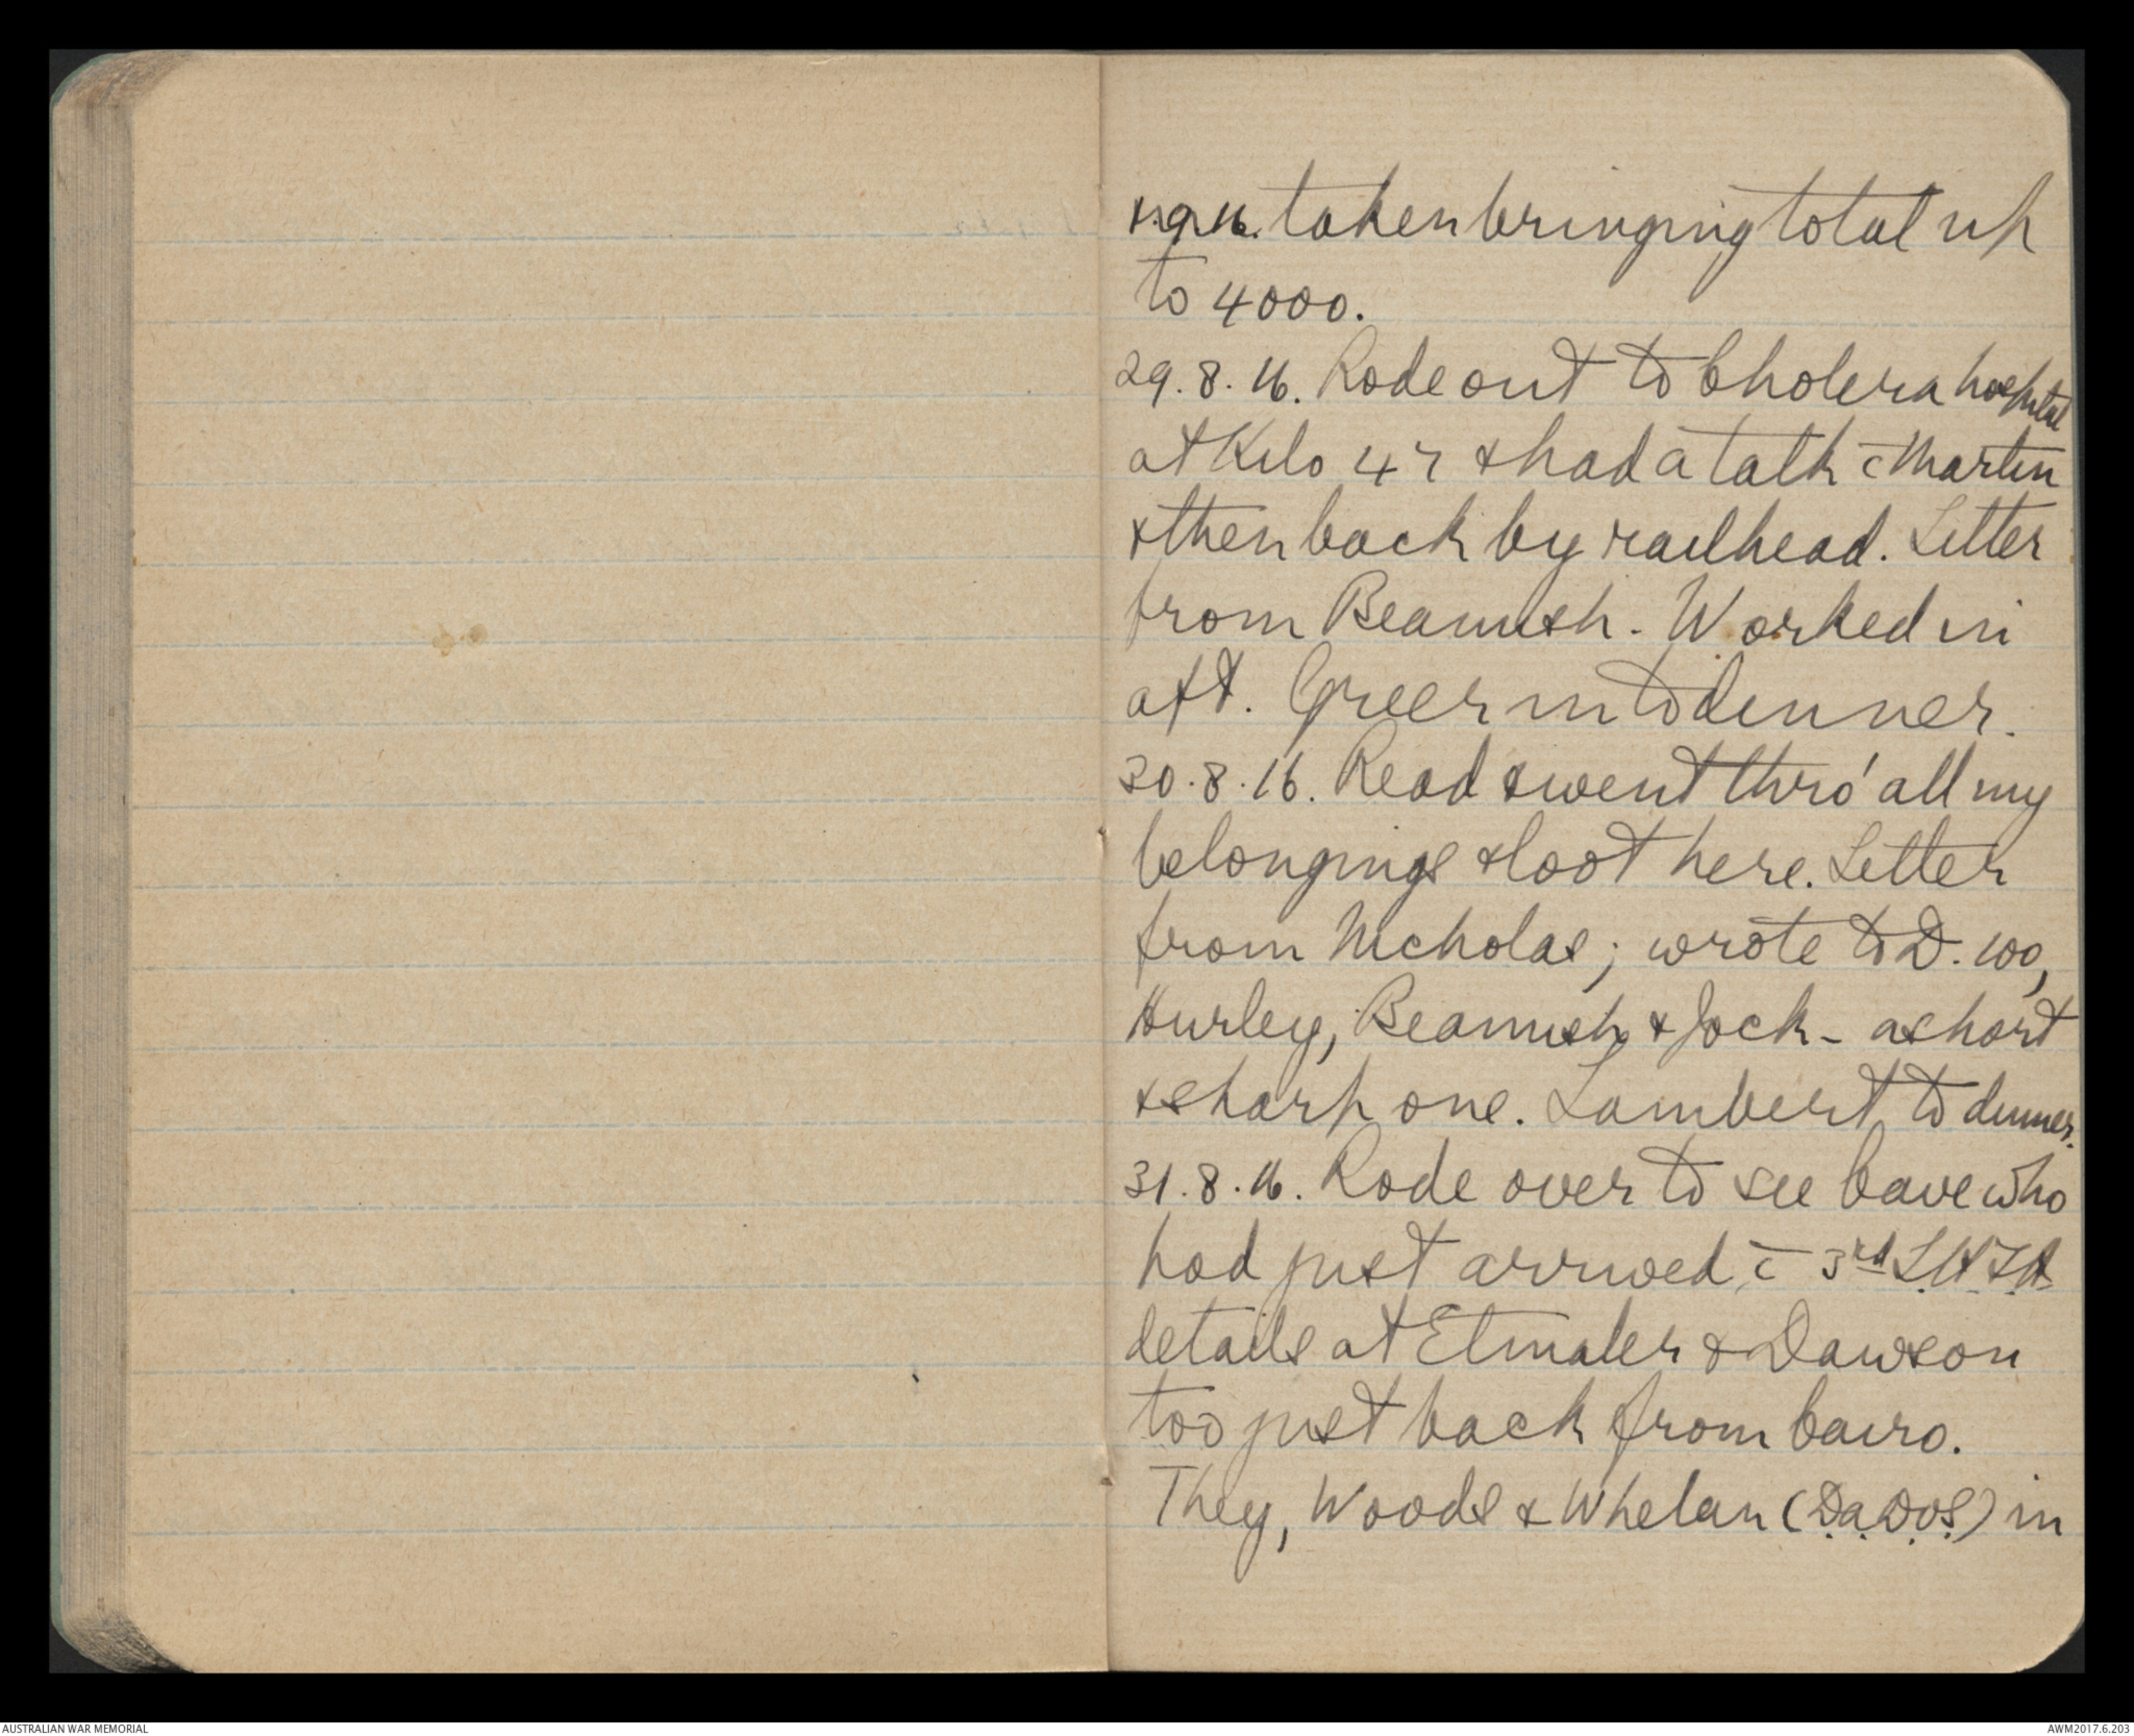 taken bringing total up
to 4000.
29.8.16. Rode out to Cholera hospital
at Kilo 47 & had a talk c̄ Martin
& then back by railhead. Letter
from Beamish. Worked in
aft. Greer in to dinner.
30.8.16. Read & went thro' all my
belongings & loot here. Letter
from Nicholas; wrote to D.
Hurley, Beamish & Jock - a short
& sharp one. Lambert to dinner.
31.8.16. Rode over to see Cave who
had just arrived c̄ 3rd L.H.F.A.
details at Etmaler & Dawson
too just back from Cairo.
They, Woods & Whelan (D.A.D.O.S.) in
AUSTRALIAN WAR MEMORIAL
AWM2017.6.203